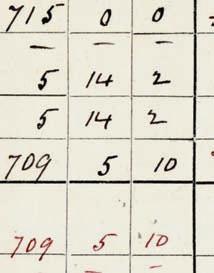 715 0 0
— — —
5 14 2
5 14 2
709 5 10
709 5 10
— —